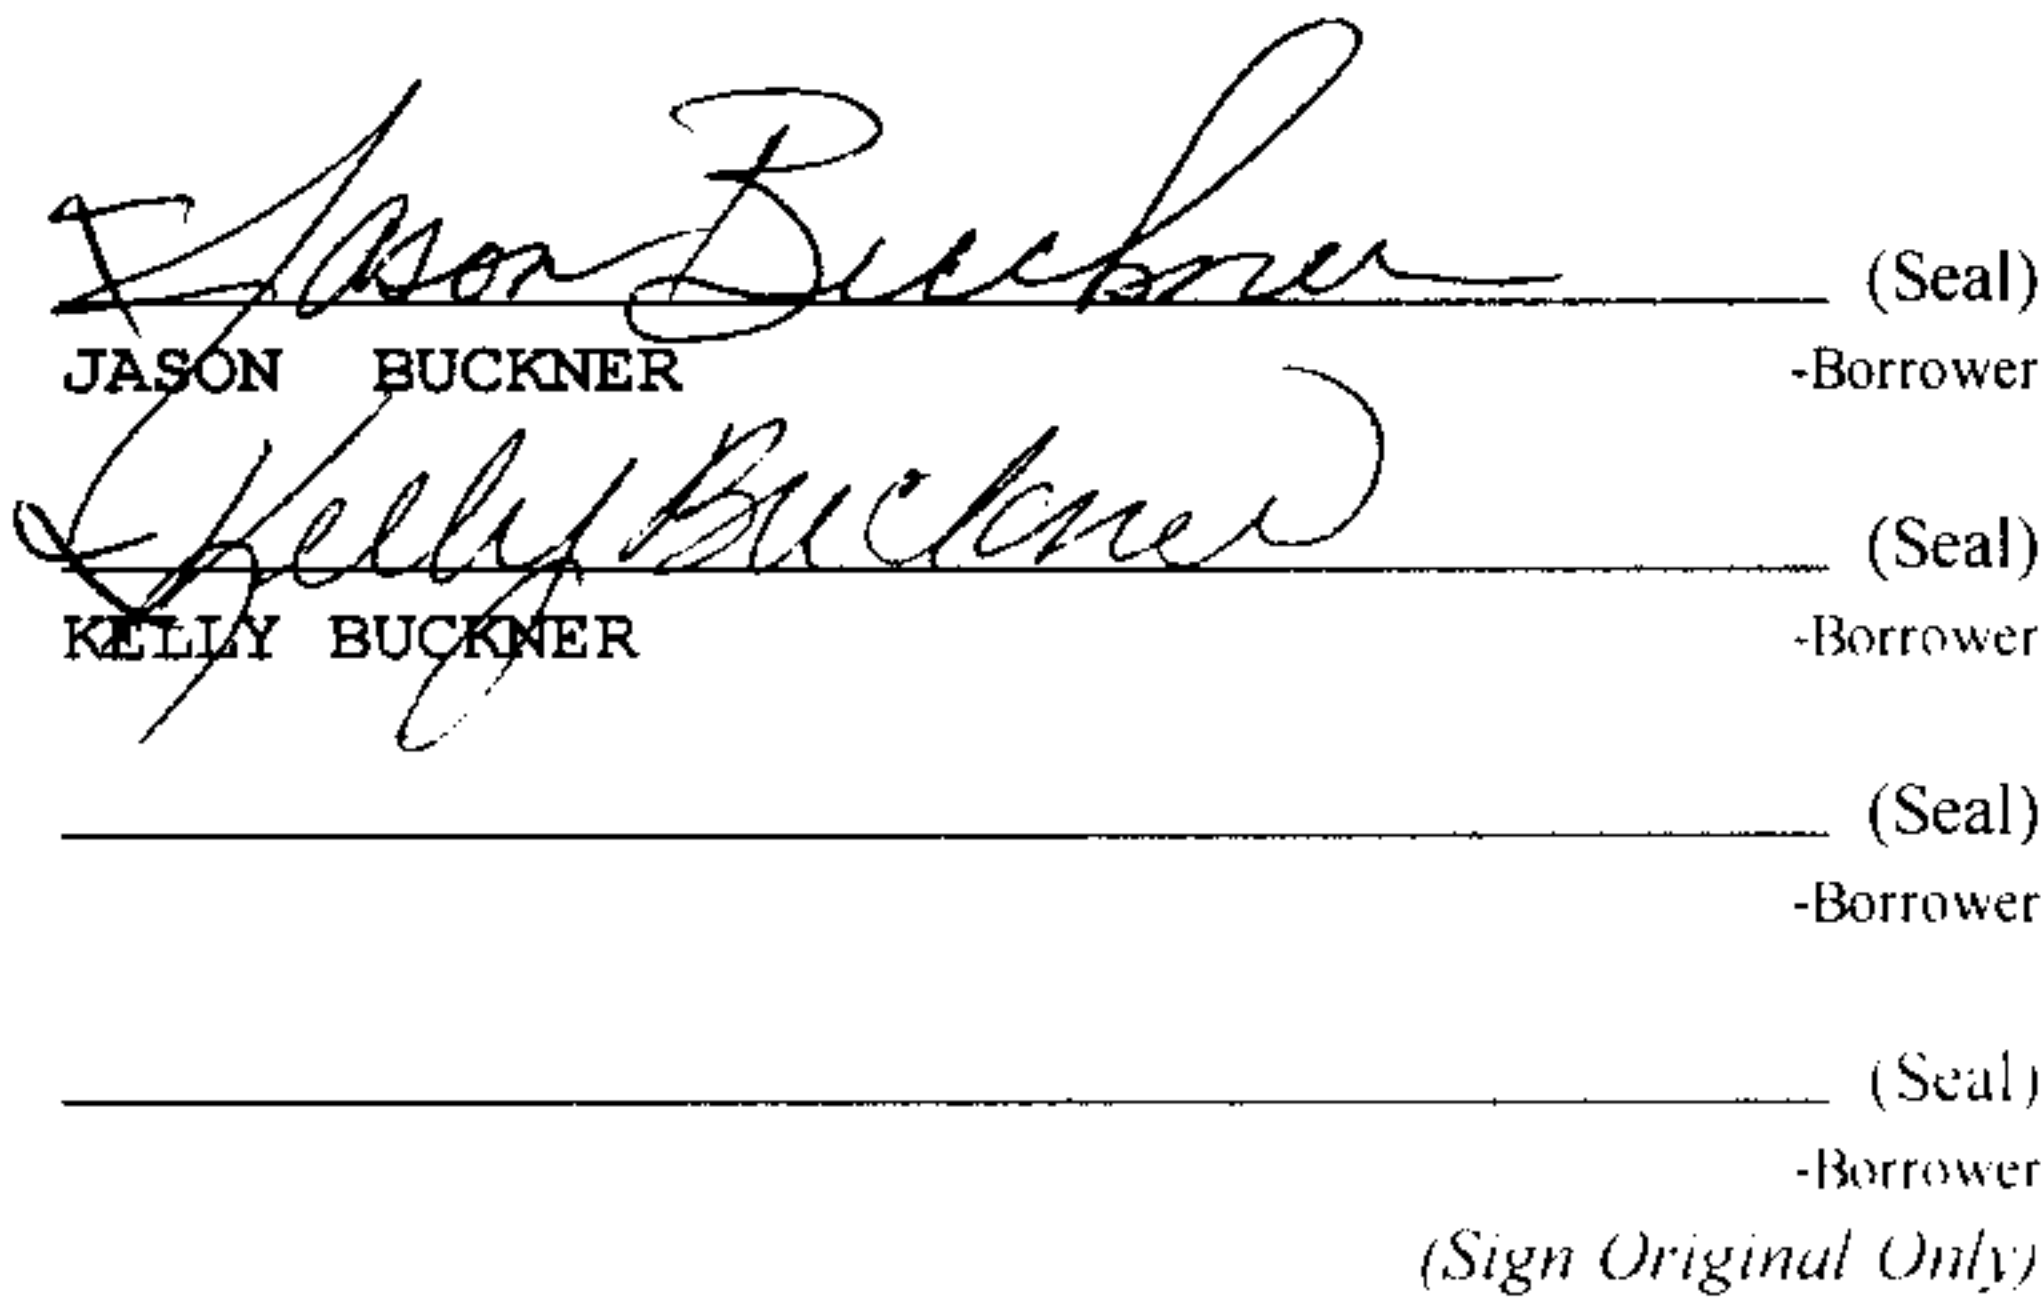 Jason Buckner (Seal)
JASON BUCKNER -Borrower
Kelly Buckner (Seal)
KELLY BUCKNER -Borrower
(Seal)
-Borrower
(Seal)
-Borrower
(Sign Original Only)